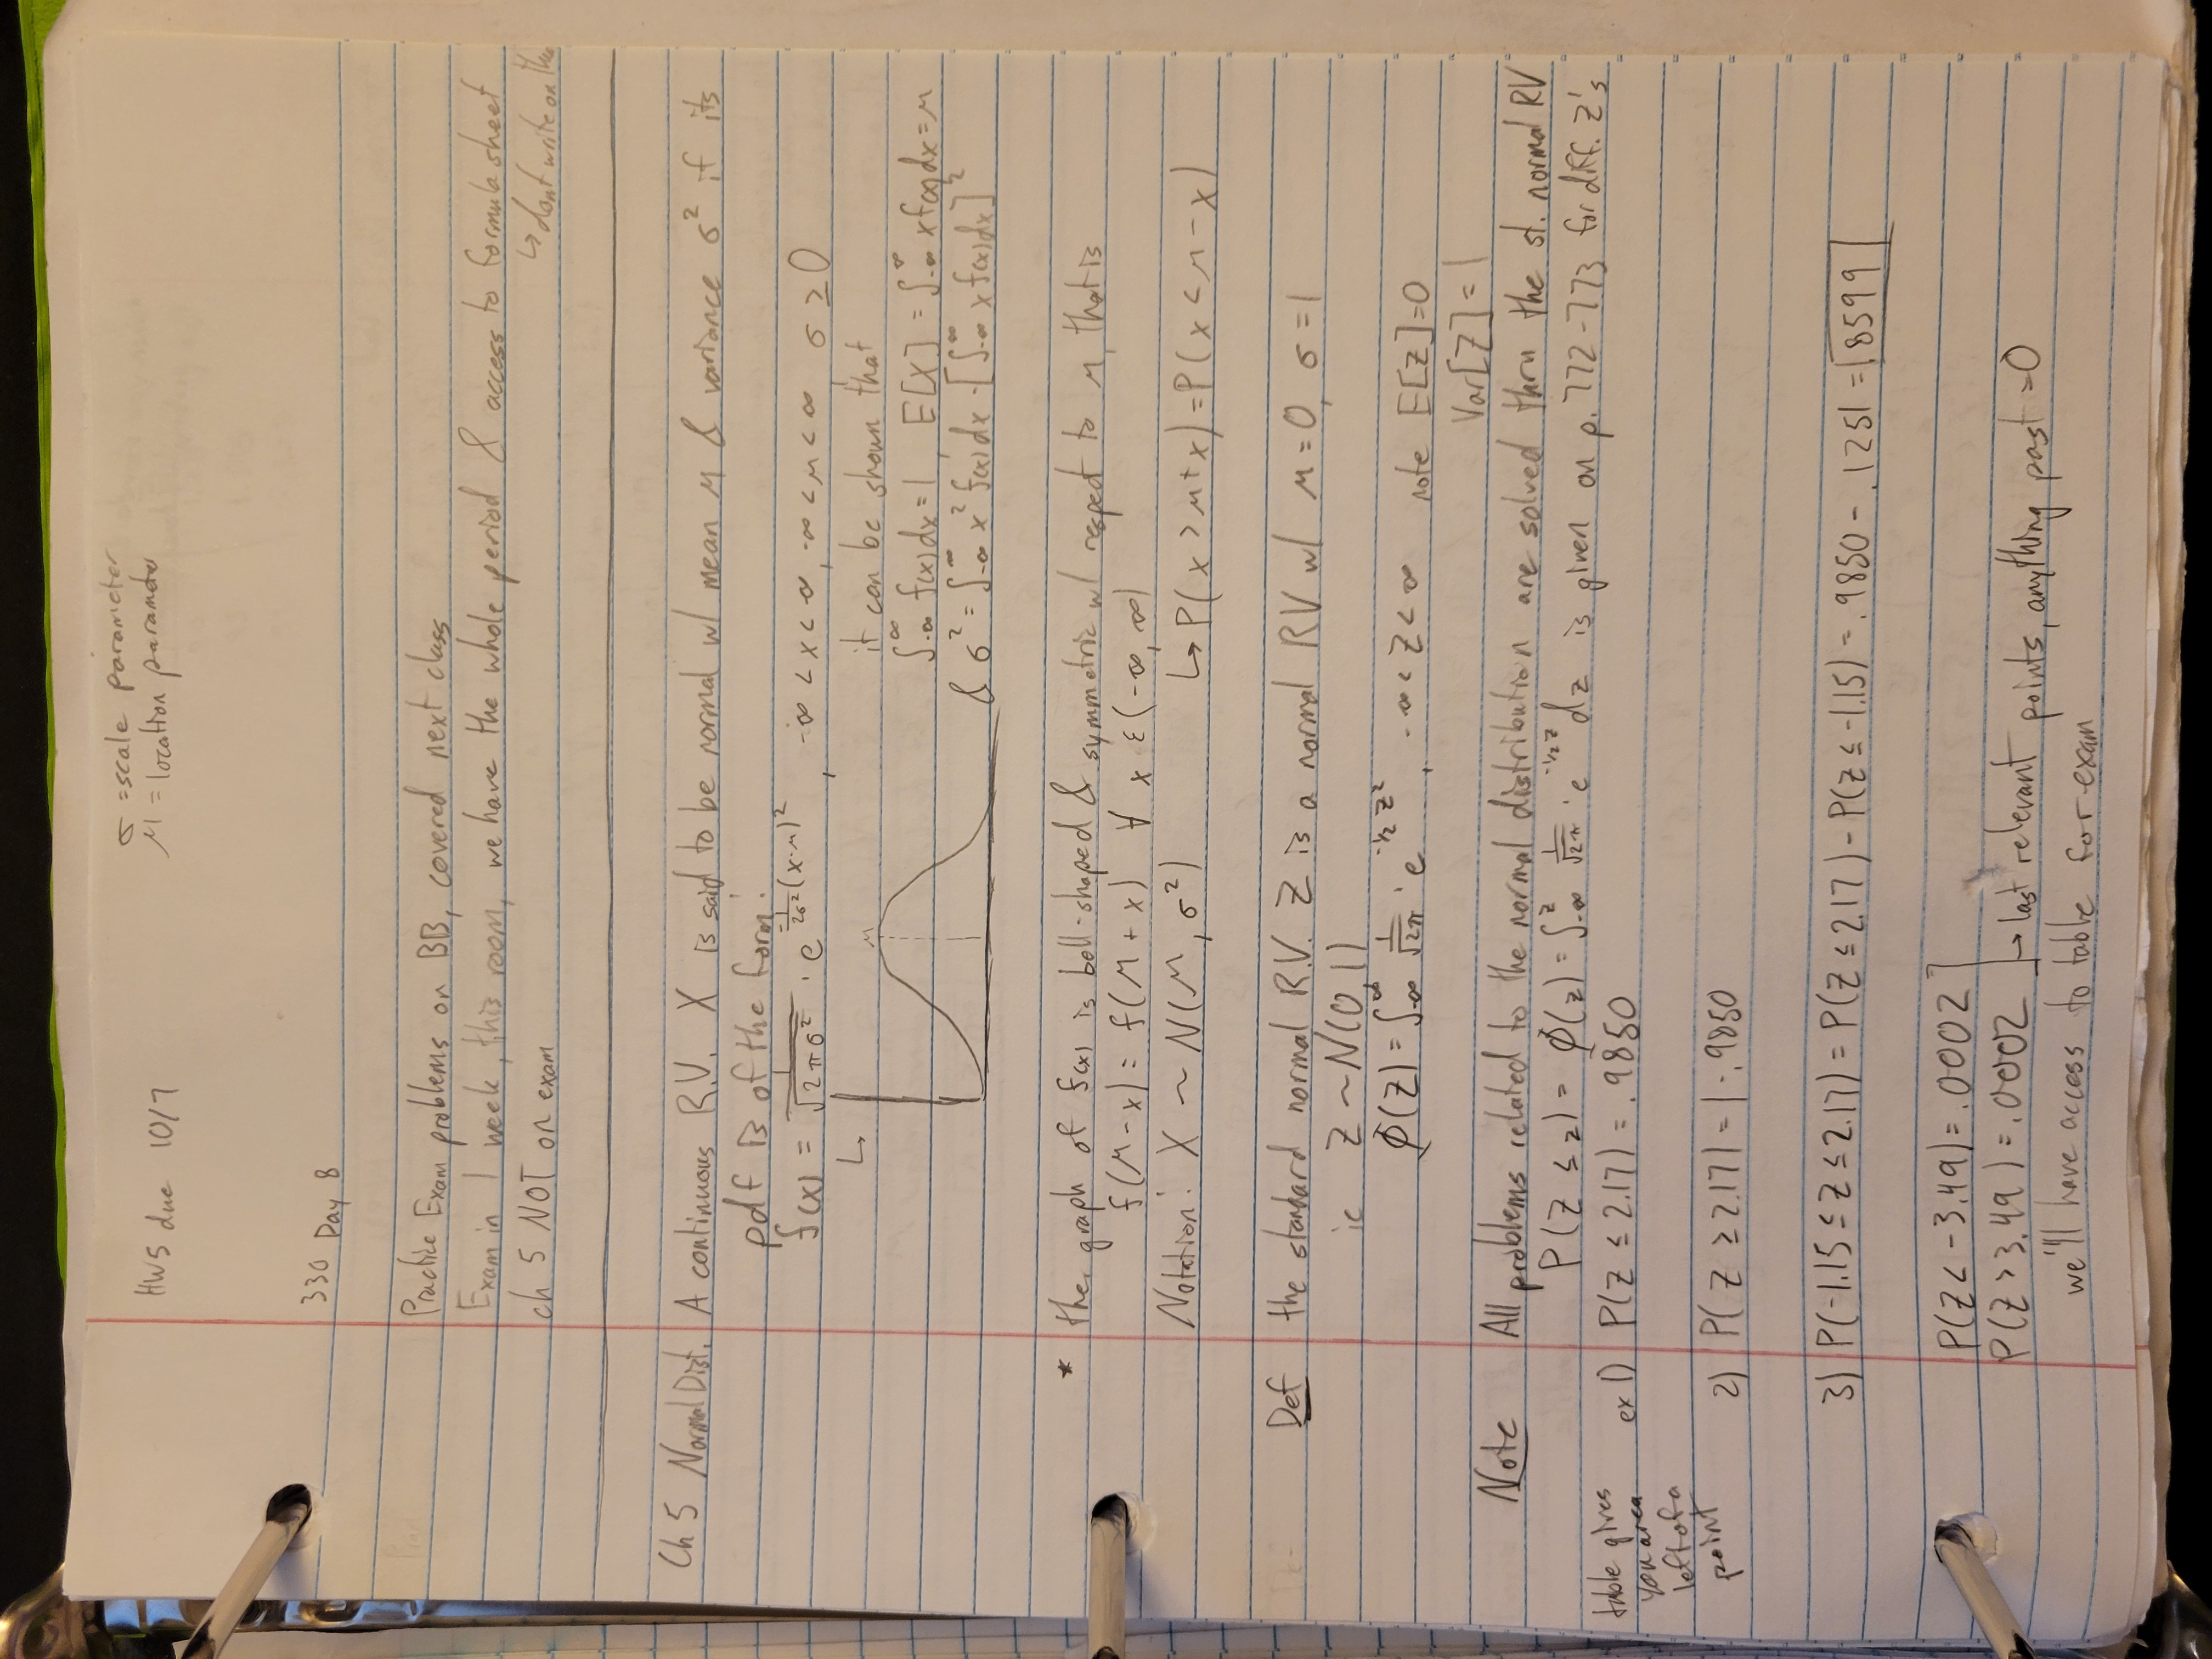 σ = scale parameter
HW5 due 10/7
μ = location parameter
330 Day 8
Practice Exam problems on BB, covered next class
Exam in 1 week, this room, we have the whole period & access to formula sheet
ch 5 NOT on exam
↳ dont write on this
Ch 5 Normal Dist. A continuous R.V. X is said to be normal w/ mean μ & variance σ² if its
pdf is of the form:
f(x) = 1/√(2πσ²) · e^(-1/(2σ²) (x-μ)²), -∞ < x < ∞, -∞ < μ < ∞, σ ≥ 0
↳
μ
it can be shown that
∫_{-∞}^{∞} f(x)dx = 1, E[X] = ∫_{-∞}^{∞} xf(x)dx = μ
& σ² = ∫_{-∞}^{∞} x² f(x)dx - [∫_{-∞}^{∞} x f(x)dx]²
* the graph of f(x) is bell-shaped & symmetric w/ respect to μ, that is
f(μ-x) = f(μ+x) ∀ x ε (-∞, ∞)
Notation: X ~ N(μ, σ²) ↳ P(x > μ+x) = P(x < μ-x)
Def the standard normal R.V. Z is a normal RV w/ μ=0, σ=1
ie Z ~ N(0,1)
Φ(Z) = ∫_{-∞}^{∞} 1/√2π · e^(-1/2 z²), -∞ < Z < ∞ note E[Z]=0
Var[Z] = 1
Note All problems related to the normal distribution are solved thru the st. normal RV
P(Z ≤ z) = Φ(z) = ∫_{-∞}^{z} 1/√2π · e^(-1/2 z) dz is given on p. 772-773 for diff. Z's
table gives
you area
left of a
point
ex 1) P(Z ≤ 2.17) = .9850
2) P(Z ≥ 2.17) = 1 - .9850
3) P(-1.15 ≤ Z ≤ 2.17) = P(Z ≤ 2.17) - P(Z ≤ -1.15) = .9850 - .1251 = .8599
P(Z < -3.49) = .0002
P(Z > 3.49) = .0002 → last relevant points, anything past = 0
we'll have access to table for exam